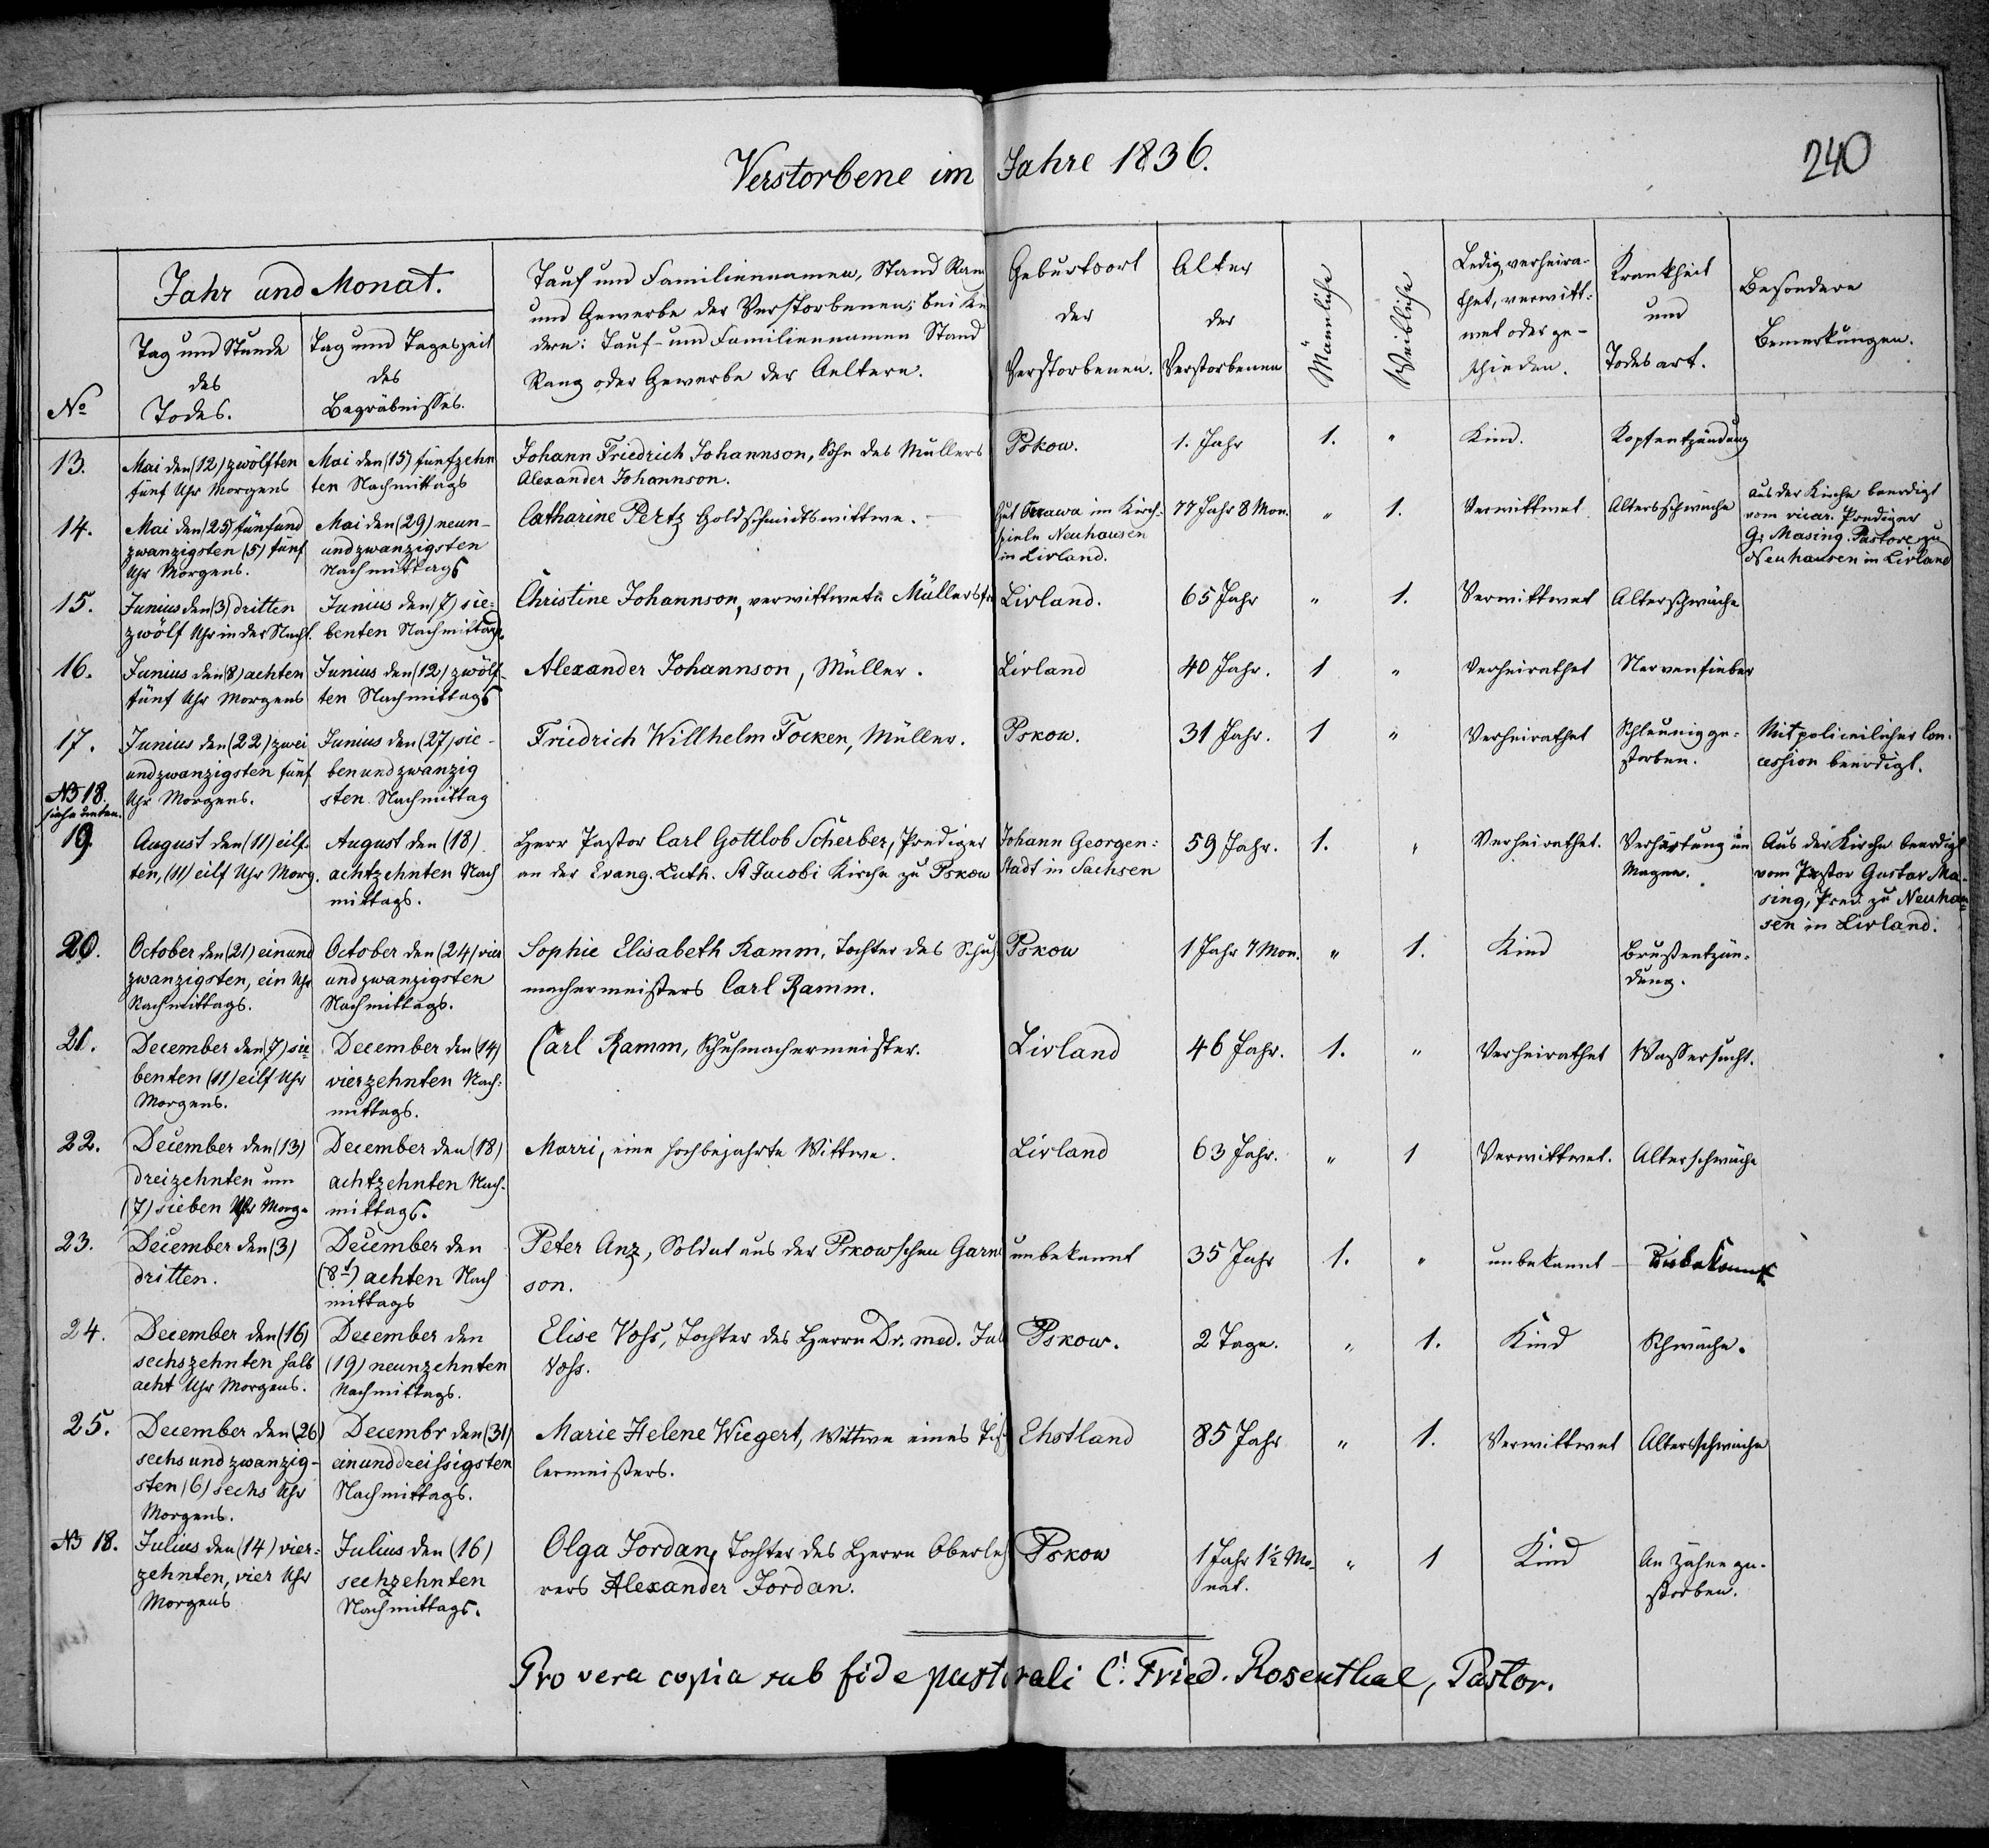 Verstorbene im Jahre 1836.
240
No
Jahr und Monat.
Tag und Stunde
des
Todes.
Tag und Tageszeit
des
Begräbnisses.
Tauf und Familiennamen, Stand Rang
und Gewerbe der Verstorbenen; bei Kin
dern: Tauf- und Familiennamen Stand
Rang oder Gewerbe der Aeltern.
Geburtsort
der
Verstorbenen.
Alter
der
Verstorbenen
Männliche
Weibliche
Ledig, verheira-
thet, verwitt-
wet oder ge-
schieden.
Krankheit
und
Todesart.
Besondere
Bemerkungen.
13.
Mai den (12) zwölften
fünf Uhr Morgens
Mai den (15) fünfzehn
ten Nachmittags
Johann Friedrich Johannson, Sohn des Müllers
Alexander Johannson.
Pskow.
1. Jahr
1.
"
Kind.
Kopfentzündung
14.
Mai den (25) fünfund
zwanzigsten (5) fünf
Uhr Morgens.
Mai den (29) neun-
undzwanzigsten
Nachmittags
Catharine Pertz Goldschmidtswittwe.
Gut im Kirch-
spiele Neuhausen
in Livland.
77 Jahr 8 Mon.
"
1.
Verwittwet
Altersschwäche
aus der Kirche beerdigt
vom vicar. Prediger
G. Masing. Pastore zu
Neuhausen in Livland
15.
Junius den (3) dritten
zwölf Uhr in der Nacht.
Junius den (7) sie-
benten Nachmittags.
Christine Johannson, verwittwete Müllersfr
Livland.
65 Jahr
"
1.
Verwittwet
Alterschwäche
16.
Junius den (8) achten
fünf Uhr Morgens
Junius den (12) zwölf-
ten Nachmittags
Alexander Johannson, Müller.
Livland
40 Jahr.
1
"
Verheirathet
Nervenfieber
17.
Junius den (22) zwei
undzwanzigsten fünf
Uhr Morgens.
Junius den (27) sie-
ben und zwanzig
sten Nachmittag
Friedrich Willhelm Focken, Müller.
Pskow.
31 Jahr.
1
"
Verheirathet
Schleunig ge-
storben.
Mit policeilicher Con-
cession beerdigt.
NB 18.
siehe unten.
19.
August den (11) eilf-
ten, (11) eilf Uhr Morg.
August den (18)
achtzehnten Nach
mittags.
Herr Pastor Carl Gottlob Scherber, Prediger
an der Evang. Luth. St Jacobi Kirche zu Pskow
Johann Georgen-
stadt in Sachsen
59 Jahr.
1.
"
Verheirathet.
Verhärtung im
Magen.
Aus der Kirche beerdigt
vom Pastor Gustav Ma-
sing, Pred. zu Neuhau-
sen in Livland.
20.
October den (21) einund
zwanzigsten, ein Uhr
Nachmittags.
October den (24) vier
und zwanzigsten
Nachmittags.
Sophie Elisabeth Ramm, Tochter des Schuh-
machermeisters Carl Ramm.
Pskow
1 Jahr 7 Mon.
"
1.
Kind
Brustentzün-
dung.
21.
December den (7) sie-
benten (11) eilf Uhr
Morgens.
December den (14)
vierzehnten Nach-
mittags.
Carl Ramm, Schuhmachermeister.
Livland
46 Jahr.
1.
"
Verheirathet
Wassersucht.
22.
December den (13)
dreizehnten um
(7) sieben Uhr Morg.
December den (18)
achtzehnten Nach-
mittags.
Marri, eine hochbejahrte Wittwe.
Livland
63 Jahr.
"
1
Verwittwet.
Alterschwäche
23.
December den (3)
dritten.
December den
(8t) achten Nach
mittags
Peter Anz, Soldat aus der Pskowschen Garni
son.
unbekannt
35 Jahr
1.
"
unbekannt
Unbekannt
24.
December den (16)
sechszehnten halb
acht Uhr Morgens.
December den
(19) neunzehnten
Nachmittags.
Elise Voss, Tochter des Herrn Dr. med. Jul
Voss.
Pskow.
2 Tage.
"
1.
Kind
Schwäche.
25.
December den (26)
sechs und zwanzig-
sten (6) sechs Uhr
Morgens.
Decembr den (31)
einunddreissigsten
Nachmittags.
Marie Helene Wiegert, Wittwe eines Tisch
lermeisters.
Ehstland
85 Jahr
"
1.
Verwittwet
Altersschwäche
NB 18.
Julius den (14) vier-
zehnten, vier Uhr
Morgens
Julius den (16)
sechzehnten
Nachmittags.
Olga Jordan, Tochter des Herrn Oberleh
rers Alexander Jordan.
Pskow
1 Jahr 1½ Mo-
nat.
"
1
Kind
An Zähne ge-
storben.
Pro vera copia sub fide pastorali C. Fried. Rosenthal, Pastor.